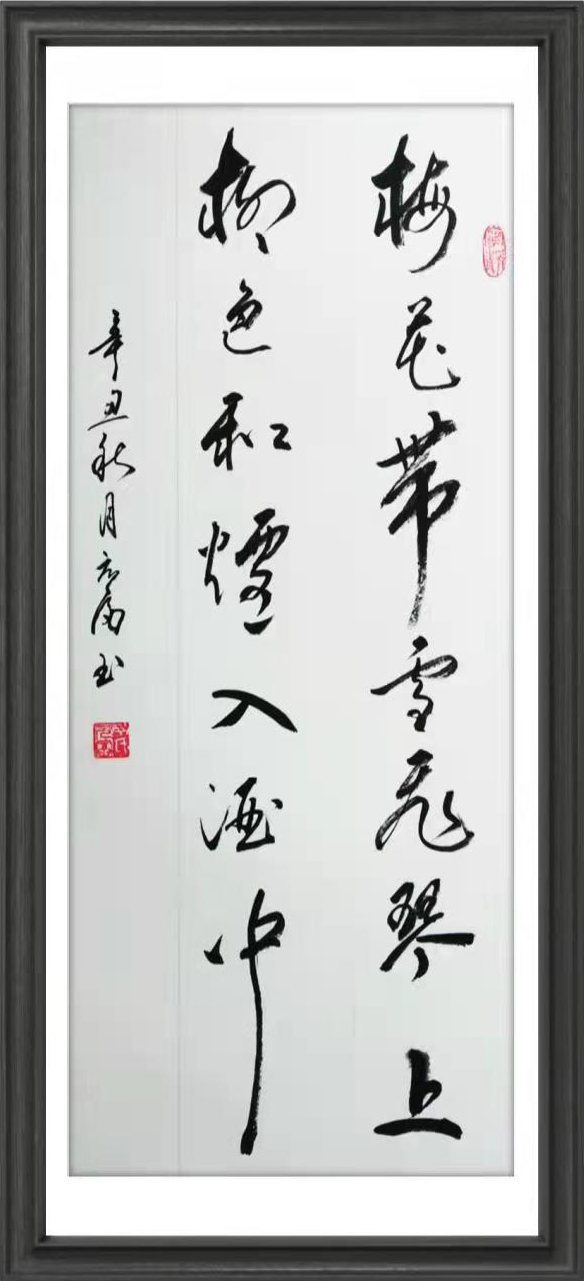 梅花带雪飛琴上
柳色和煙入酒中
辛丑秋月 書